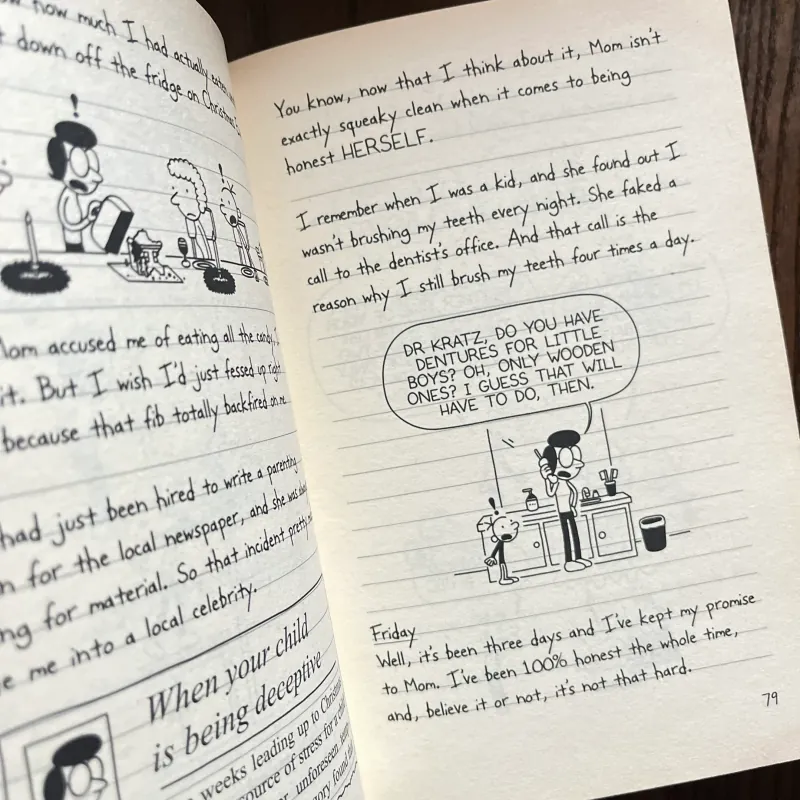 how much I had actually eaten
down off the fridge on Christmas
!
Mom accused me of eating all the candy,
it. But I wish I'd just fessed up right
because that fib totally backfired on me.
had just been hired to write a parenting
for the local newspaper, and she was
for material. So that incident pretty
me into a local celebrity.
When your child
is being deceptive
weeks leading up to Christmas
source of stress for a
unforeseen
found
You know, now that I think about it, Mom isn't
exactly squeaky clean when it comes to being
honest HERSELF.
I remember when I was a kid, and she found out I
wasn't brushing my teeth every night. She faked a
call to the dentist's office. And that call is the
reason why I still brush my teeth four times a day.
DR KRATZ, DO YOU HAVE
DENTURES FOR LITTLE
BOYS? OH, ONLY WOODEN
ONES? I GUESS THAT WILL
HAVE TO DO, THEN.
!
Friday
Well, it's been three days and I've kept my promise
to Mom. I've been 100% honest the whole time,
and, believe it or not, it's not that hard.
79